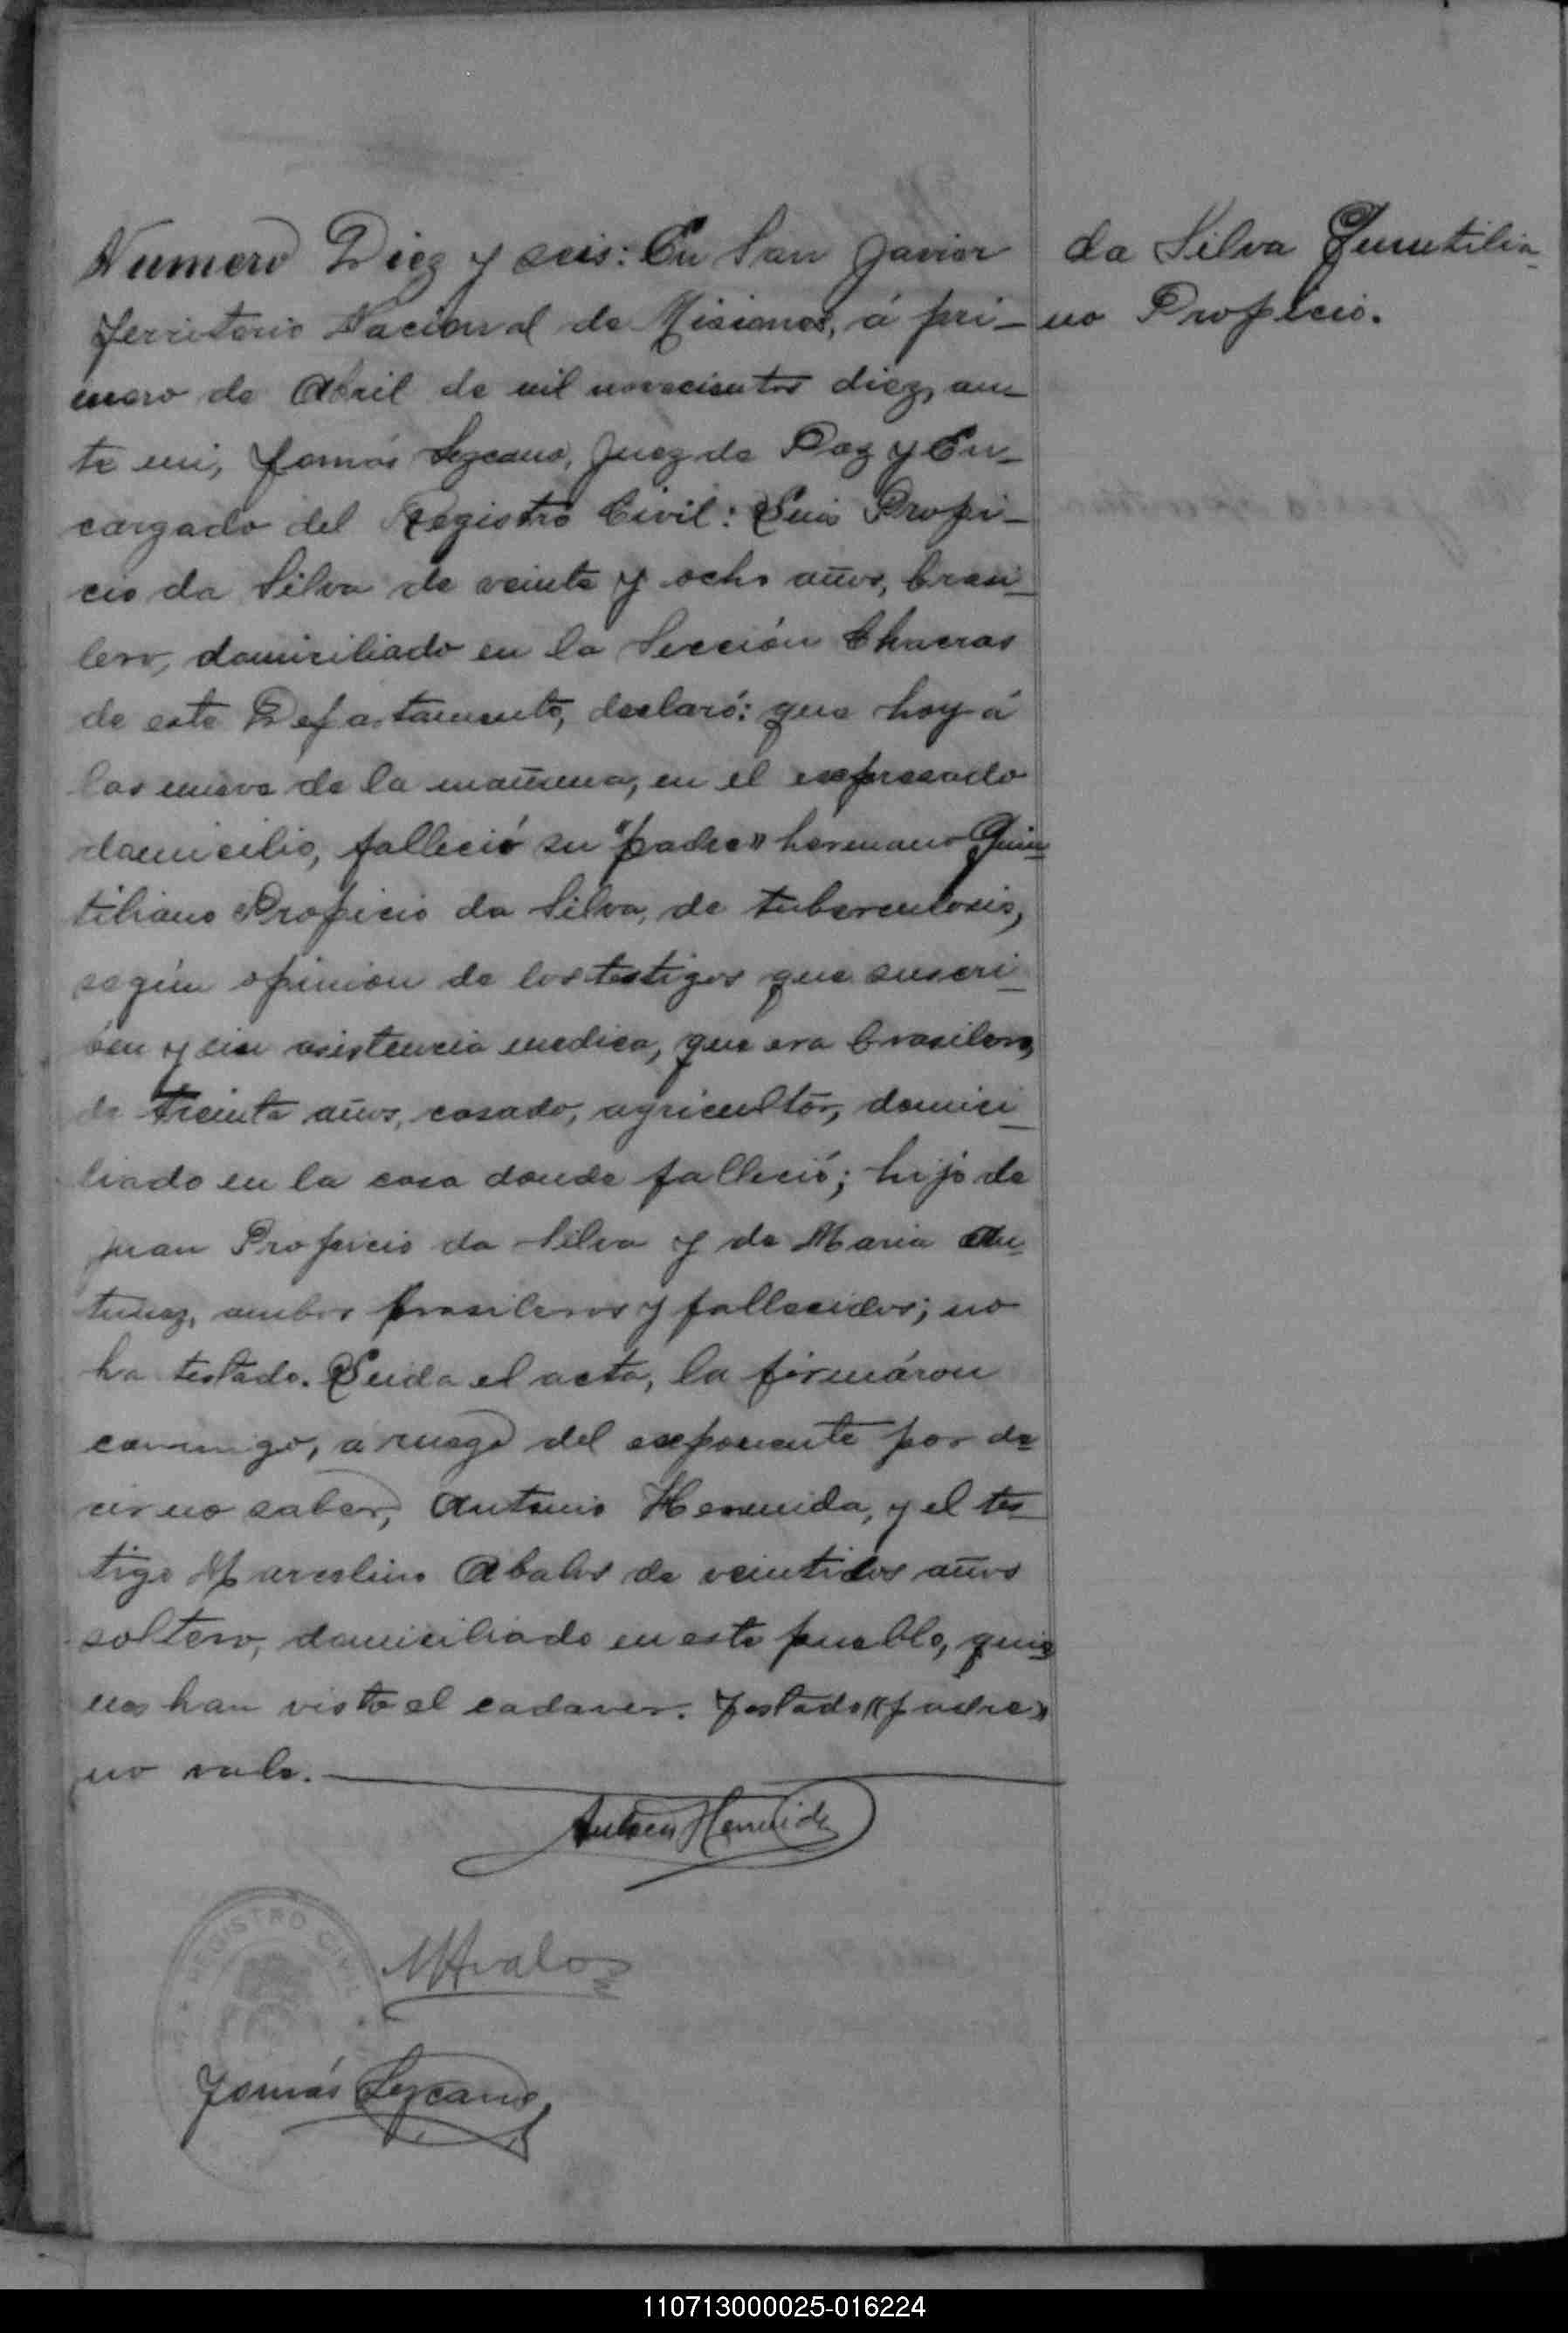 Numero Diez y seis: En San Javier
Territorio Nacional de Misiones, á pri-
mero de Abril de mil novecientos diez, an-
te mi, Tomás Lezcano, Juez de Paz y En-
cargado del Registro Civil: Luis Propi-
cio da Silva de veinte y ocho años, brasi-
lero, domiciliado en la Sección Chacras
de este Departamento, declaró: que hoy á
las nueve de la mañana, en el expresado
domicilio, falleció su "padre" hermano Quin-
tiliano Propicio da Silva, de tuberculosis,
según opinion de los testigos que suscri-
ben y sin asistencia medica, que era brasilero,
de treinta años, casado, agricultor, domici-
liado en la casa donde falleció; hijo de
Juan Propicio da Silva y de Maria An-
tunez, ambos brasileros y fallecidos; no
ha testado. Leida el acta, la firmáron
conmigo, a ruego del exponente por de-
cir no saber, Antonio Hermida, y el tes-
tigo Marcelino Abalos de veintidos años
soltero, domiciliado en este pueblo, quie-
nes han visto el cadaver. Testado "padre"
no vale.
da Silva Quintilia-
no Propicio.
Antonio Hermida
MAvalos
REGISTRO CIVIL
Tomás Lezcano
110713000025-016224